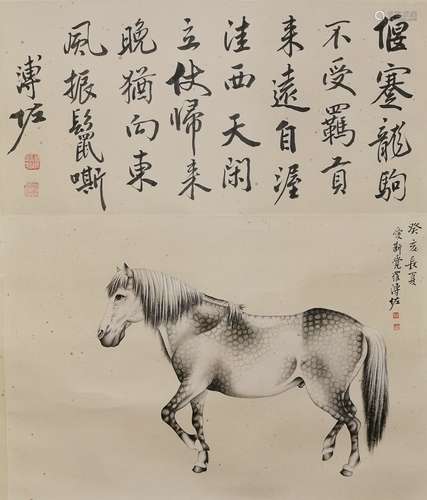 偃蹇龍駒
不受羈貢
来遠自渥
洼西天閑
立仗歸来
晚猶向東
風振鬣嘶
溥佐
癸亥長夏
愛新覺羅溥佐